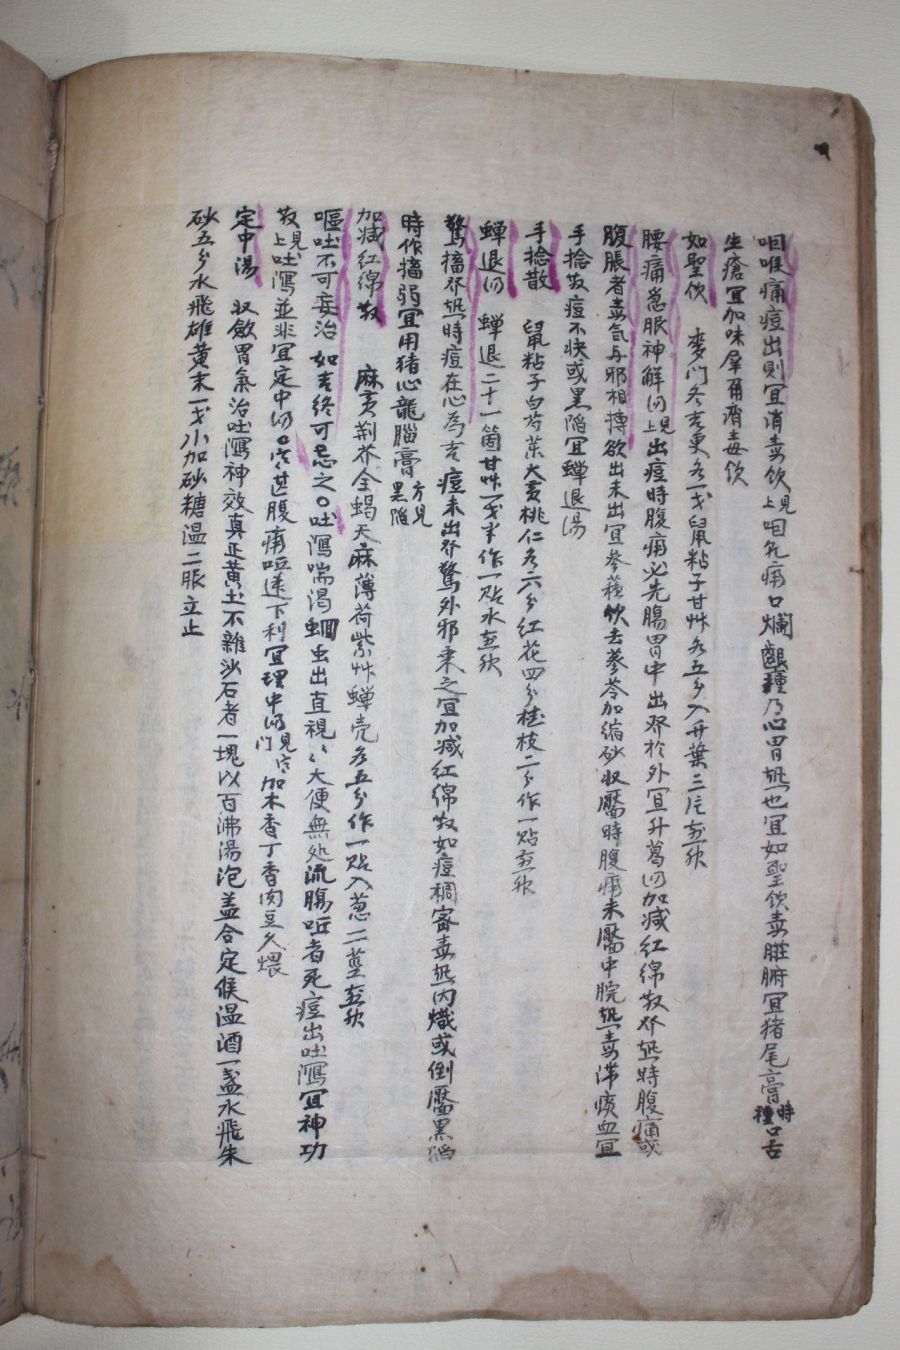 咽喉痛痘出則宜消毒飮見上咽乳痛口爛齦種乃心胃熱也宜如聖飮毒壅腑宜猪尾膏時種口舌
生瘡宜加味犀角消毒飮
如聖飮 麥門冬吉更各一戔鼠粘子甘艸各五分入竹葉三片煎服
腰痛葱服神解見上出痘時腹痛必先腸胃中出發於外宜升葛加减紅綿散發熱時腹痛或
腹脹者毒氣与邪相搏欲出未出宜參蘓飮去蔘苓加縮砂收靨時腹痛未靨中脘熱毒滯痰血宜
手捻散痘不快或黑陷宜蟬退湯
手捻散 鼠粘子白芍藥大黃桃仁各六分紅花四分桂枝二分作一貼煎服
蟬退 蟬退二十一箇甘艸一戔半作一貼水煎服
驚搐發熱時痘在心爲吉痘未出發驚外邪乘之宜加减紅綿散如痘稠密毒熱內熾或倒靨黑陷
時作搐弱宜用猪心龍腦膏方見黑陷
加减紅綿散 麻黃荊芥全蝎天麻薄荷紫艸蟬壳各五分作一貼入葱二莖煎服
嘔吐不可妄治如吉終可忌之○吐瀉喘渴蛔虫出直視大便無処流腸近者死痘出吐瀉宜神功
散見上吐瀉並非宜定中○甚腹痛哑逆下利宜理中見加木香丁香肉豆久煨
定中湯 収歛胃氣治吐瀉神效真正黃土不雜沙石者一塊以百沸湯泡盖合定候溫酒一盞水飛朱
砂五分水飛雄黃末一戔小加砂糖溫二服立止